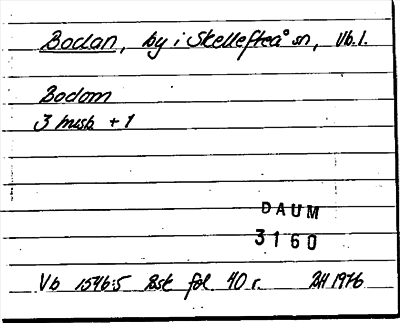 Bodan, by i Skellefteå sn, Vb.l.
Bodom
3 msb. + 1
DAUM
3160
Vb 1546:5 Bsk fol. 40 r. BH 1976